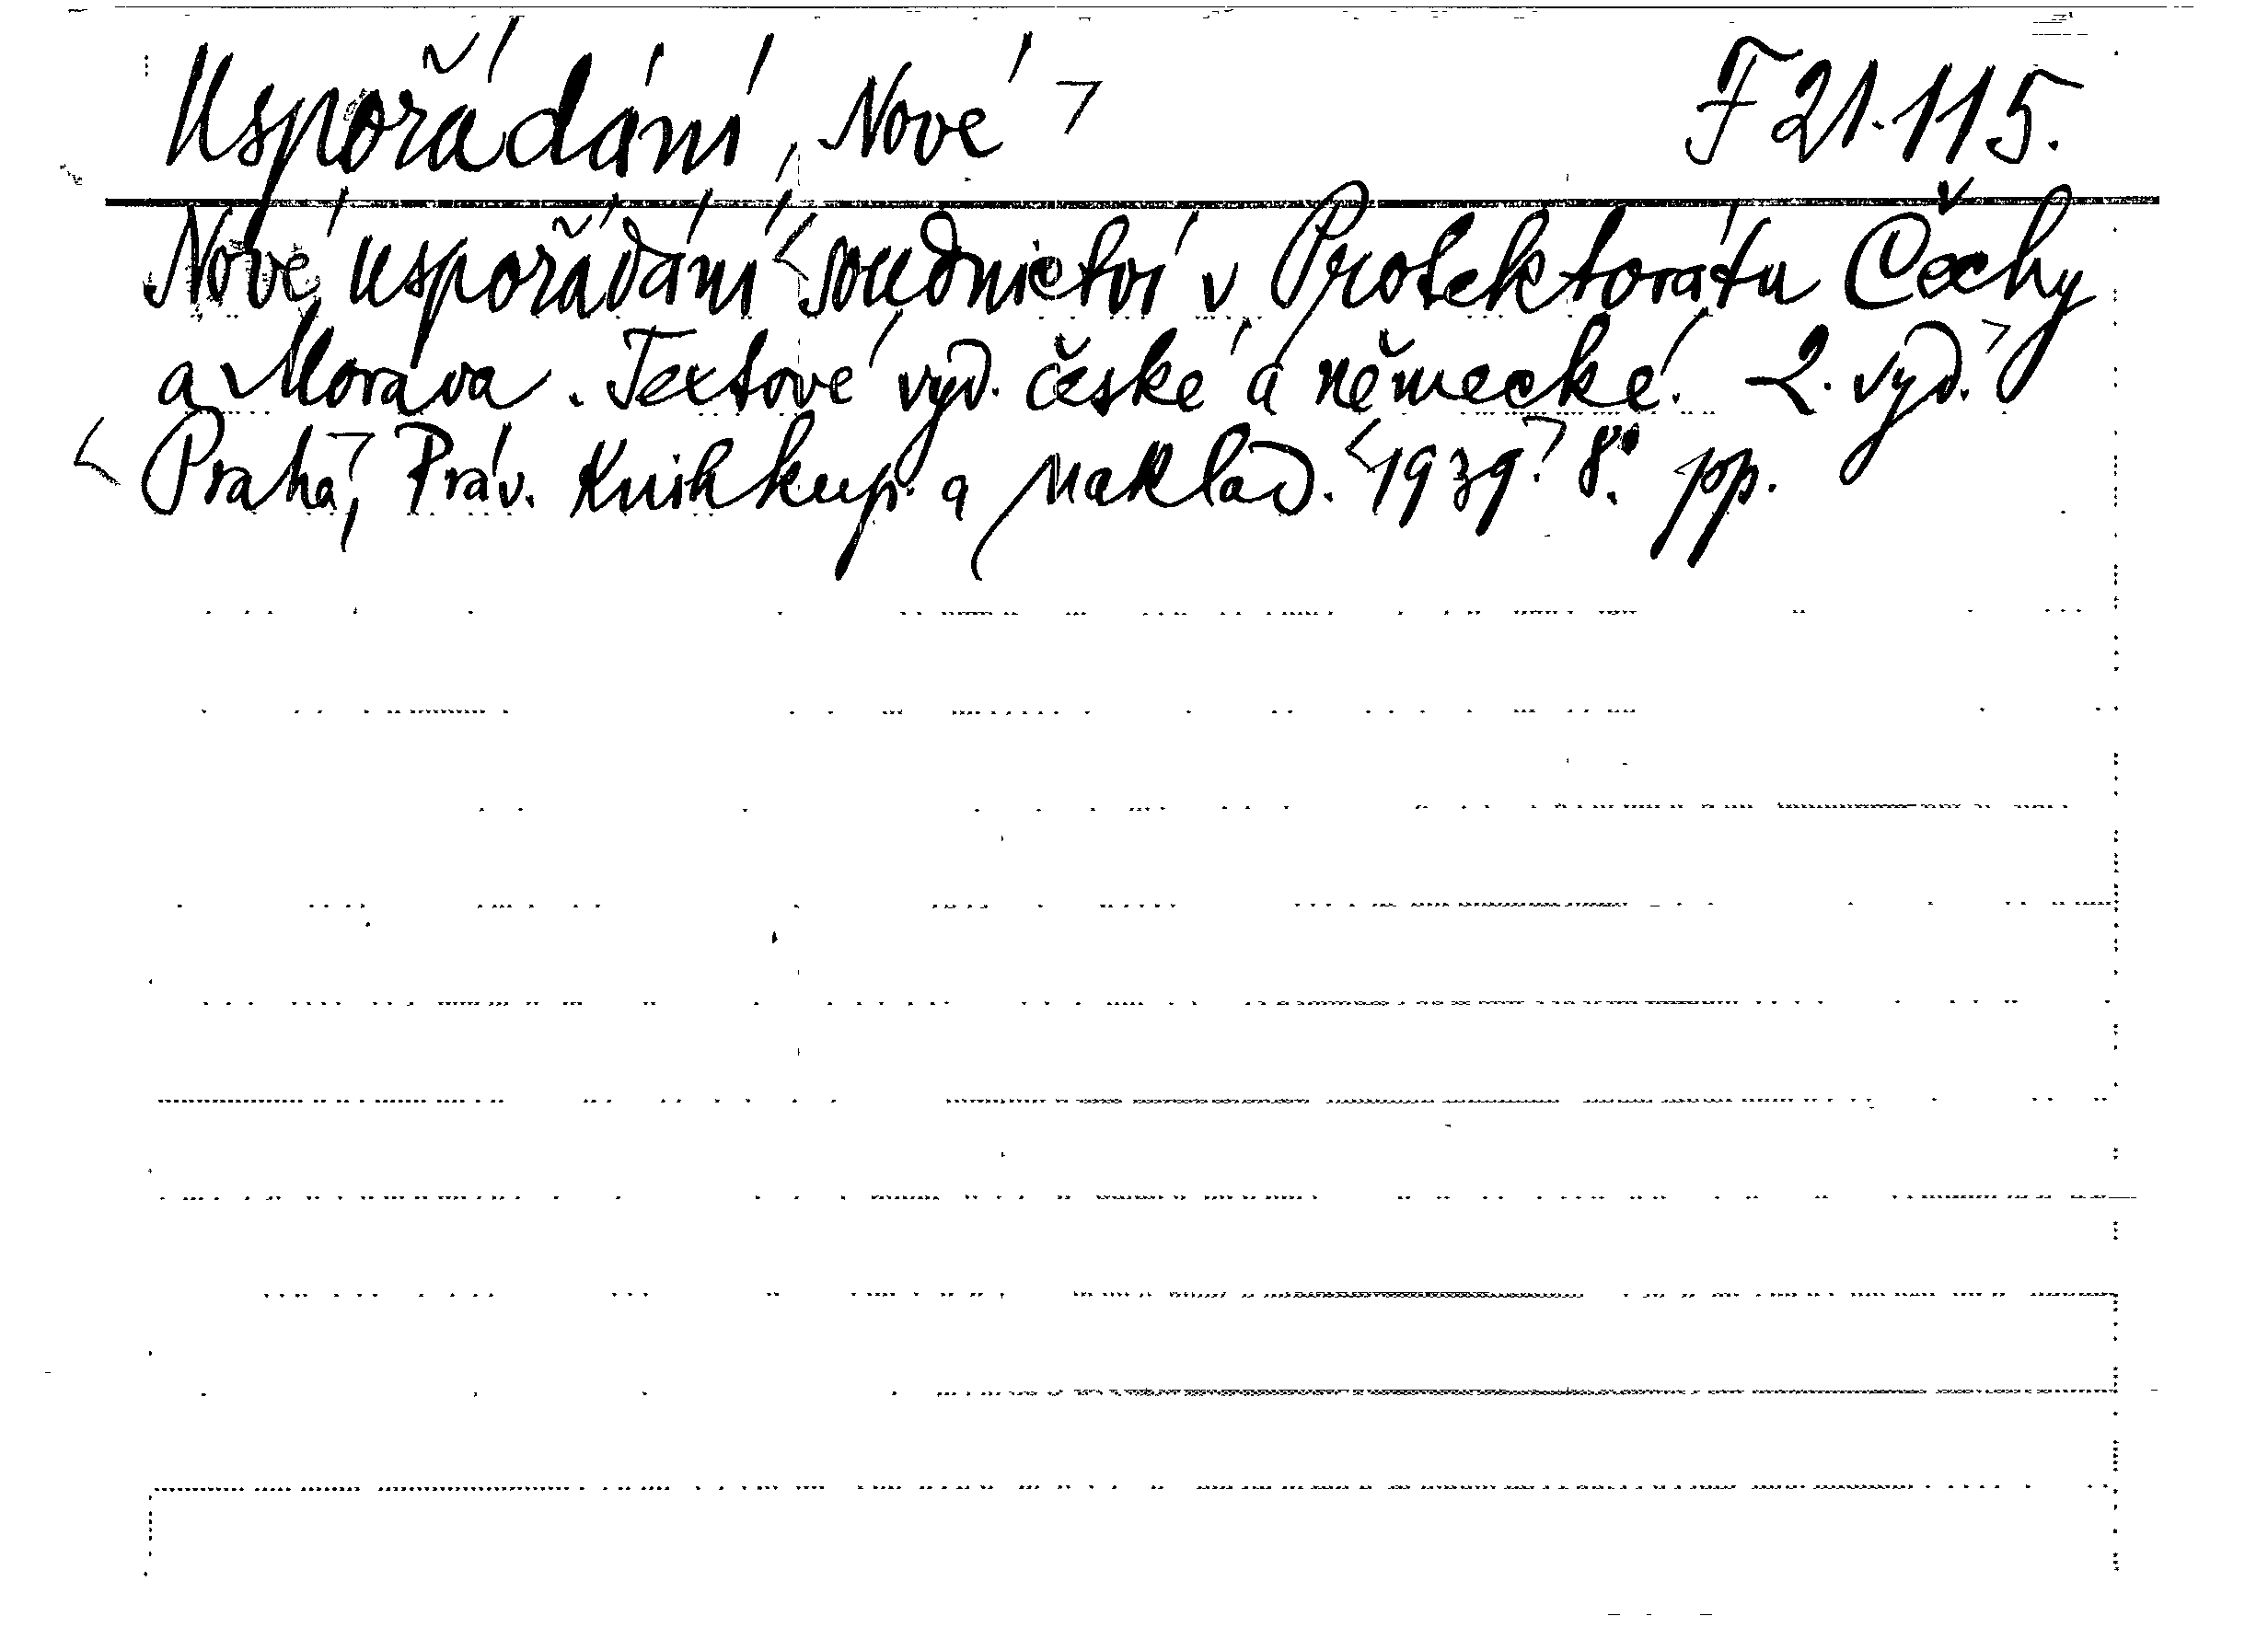 Uspořádání, Nové F 21.115.
Nové uspořádání soudnictví v Protektorátu Čechy
a Morava. Textové vyd. české a německé. 2. vyd.
Praha, Práv. Knihkup. a Naklad. 1939. 8°. pp.